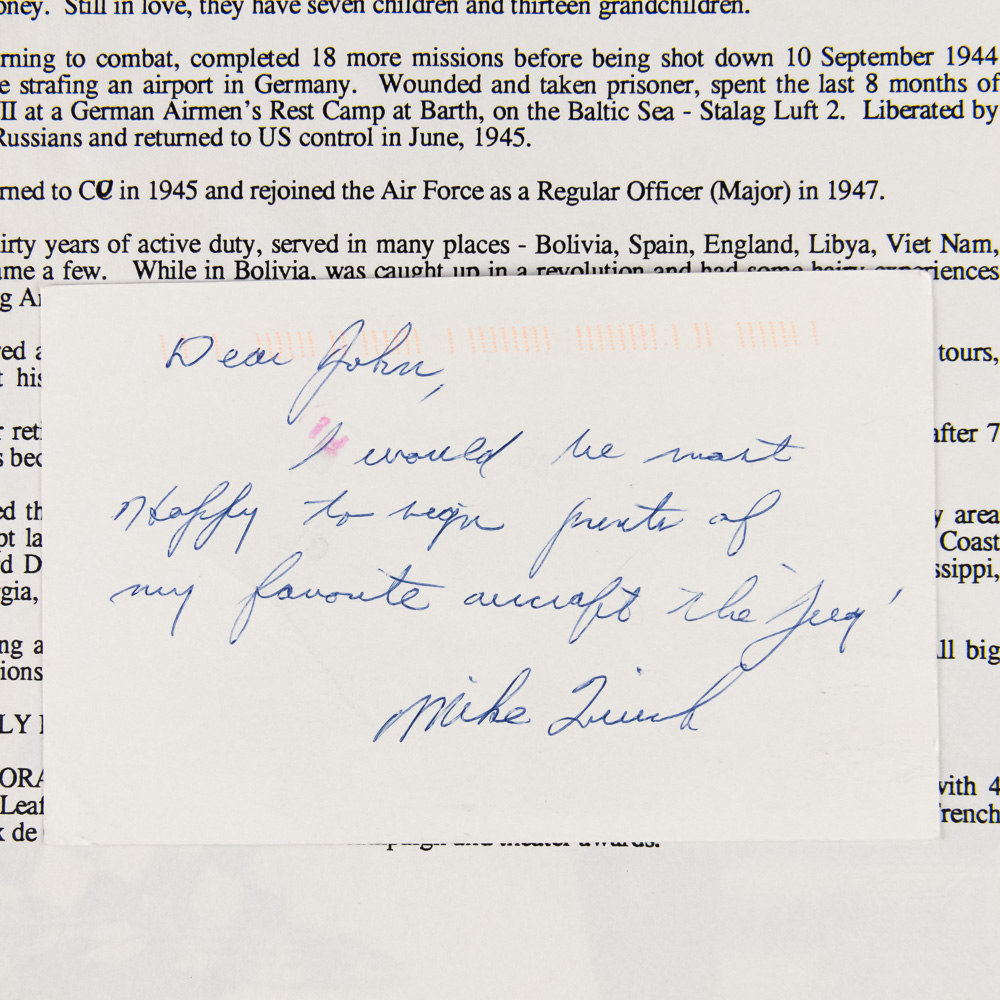 oney. Still in love, they have seven children and thirteen grandchildren.
rning to combat, completed 18 more missions before being shot down 10 September 1944
e strafing an airport in Germany. Wounded and taken prisoner, spent the last 8 months of
II at a German Airmen's Rest Camp at Barth, on the Baltic Sea - Stalag Luft 2. Liberated by
Russians and returned to US control in June, 1945.
rned to CO in 1945 and rejoined the Air Force as a Regular Officer (Major) in 1947.
irty years of active duty, served in many places - Bolivia, Spain, England, Libya, Viet Nam,
ame a few. While in Bolivia, was caught up in a revolution and had some hairy experiences
g A
red a tours,
t his
r reti after 7
s bec
ed th y area
pt la Coast
d D ssippi,
gia,
ng a ll big
ions
LY
ORA with 4
Leaf French
x de
campaign and theater awards.
Dear John,
I would be most
Happy to sign prints of
my favorite aircraft "The Jug"
Mike